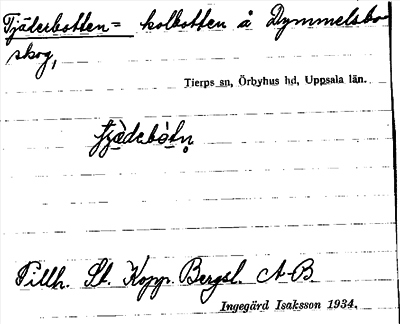 Tjäderbotten = kolbotten å Dymmelsbo
skog,
Tierps sn, Örbyhus hd, Uppsala län.
tjädebòtn̥
Tillh. St. Kopp. Bergsl. A-B.
Ingegärd Isaksson 1934.